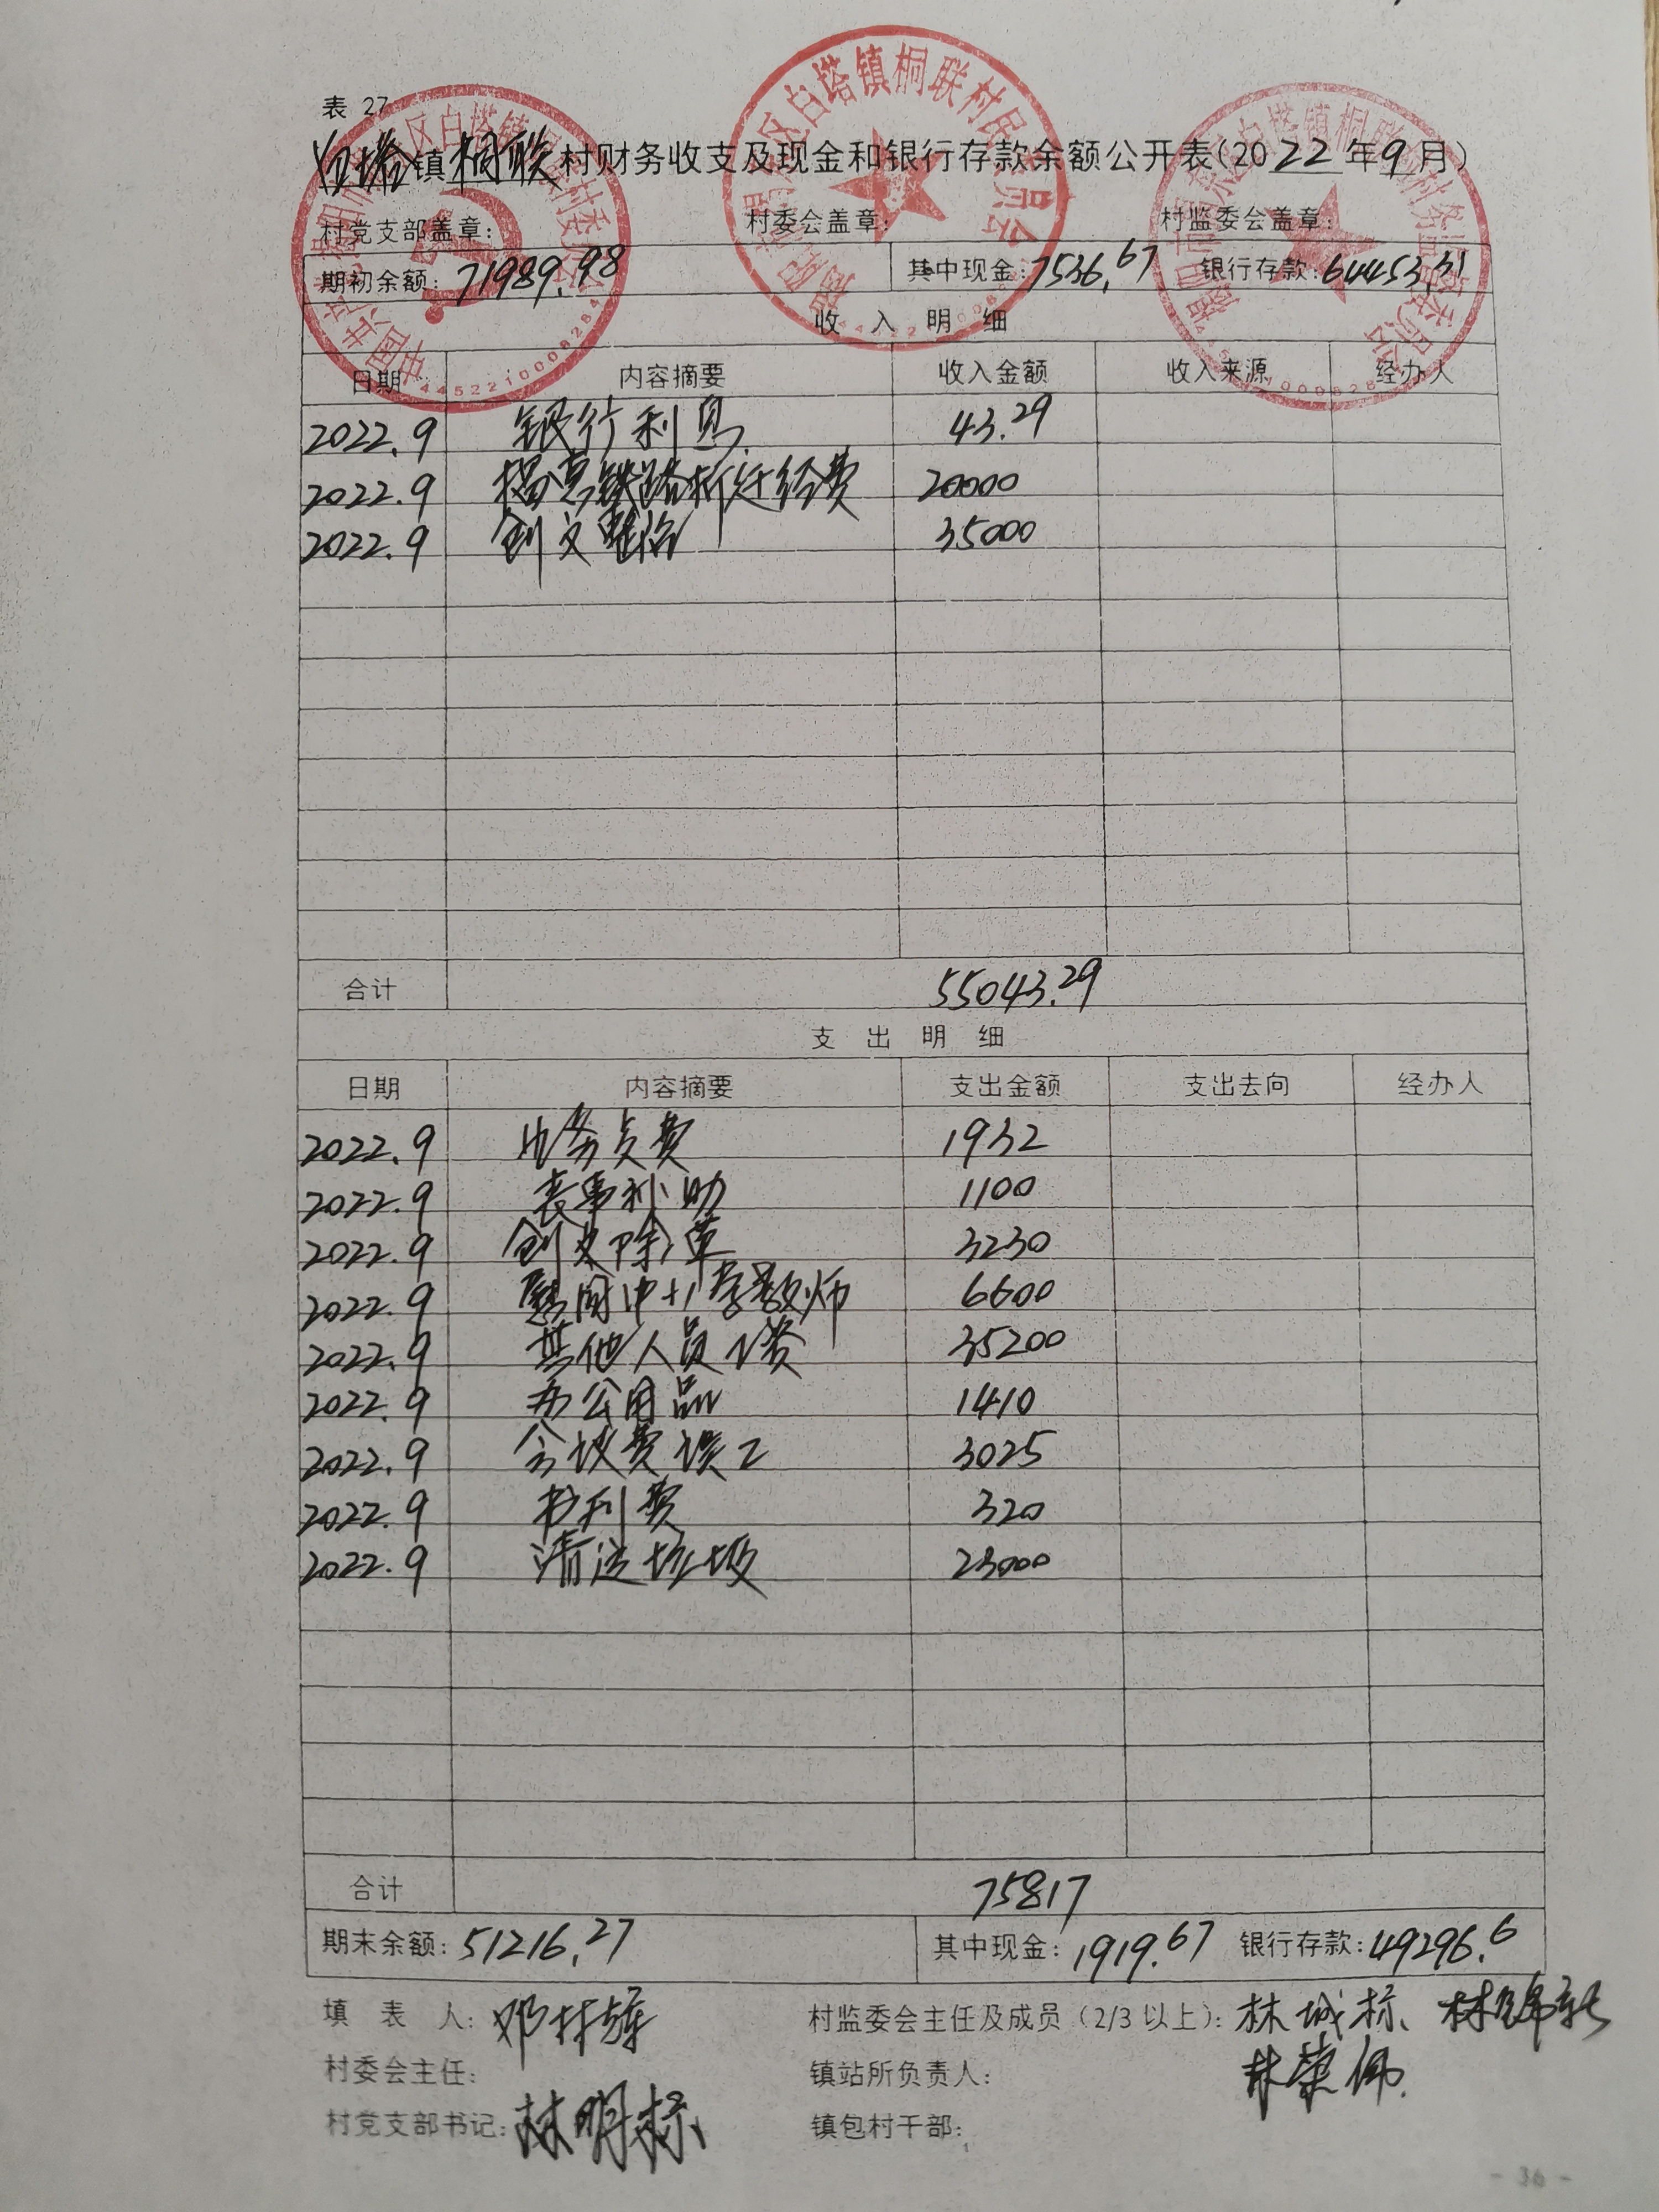 表 27
白塔镇桐联村财务收支及现金和银行存款余额公开表(2022年9月)
村党支部盖章: 村委会盖章: 村监委会盖章:
期初余额: 71989.98 其中现金: 7536.67 银行存款: 64453.31
收 入 明 细
日期 内容摘要 收入金额 收入来源 经办人
2022.9 银行利息 43.29
2022.9 揭惠铁路拆迁经费 20000
2022.9 创文整治 35000
合计 55043.29
支 出 明 细
日期 内容摘要 支出金额 支出去向 经办人
2022.9 电务员费 1932
2022.9 丧事补助 1100
2022.9 创文除草 3230
2022.9 慰问中小学教师 6600
2022.9 其他人员工资 35200
2022.9 办公用品 1410
2022.9 会议费误工 3025
2022.9 书刊费 320
2022.9 清运垃圾 23000
合计 75817
期末余额: 51216.27 其中现金: 1919.67 银行存款: 49296.6
填 表 人: 邓 村监委会主任及成员(2/3以上): 林城标、林
村委会主任: 镇站所负责人: 林荣佩.
村党支部书记: 林明标 镇包村干部:
- 36 -